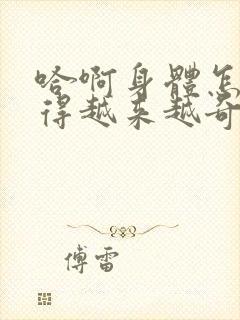 哈啊身體怎
得越来越奇
傅雷